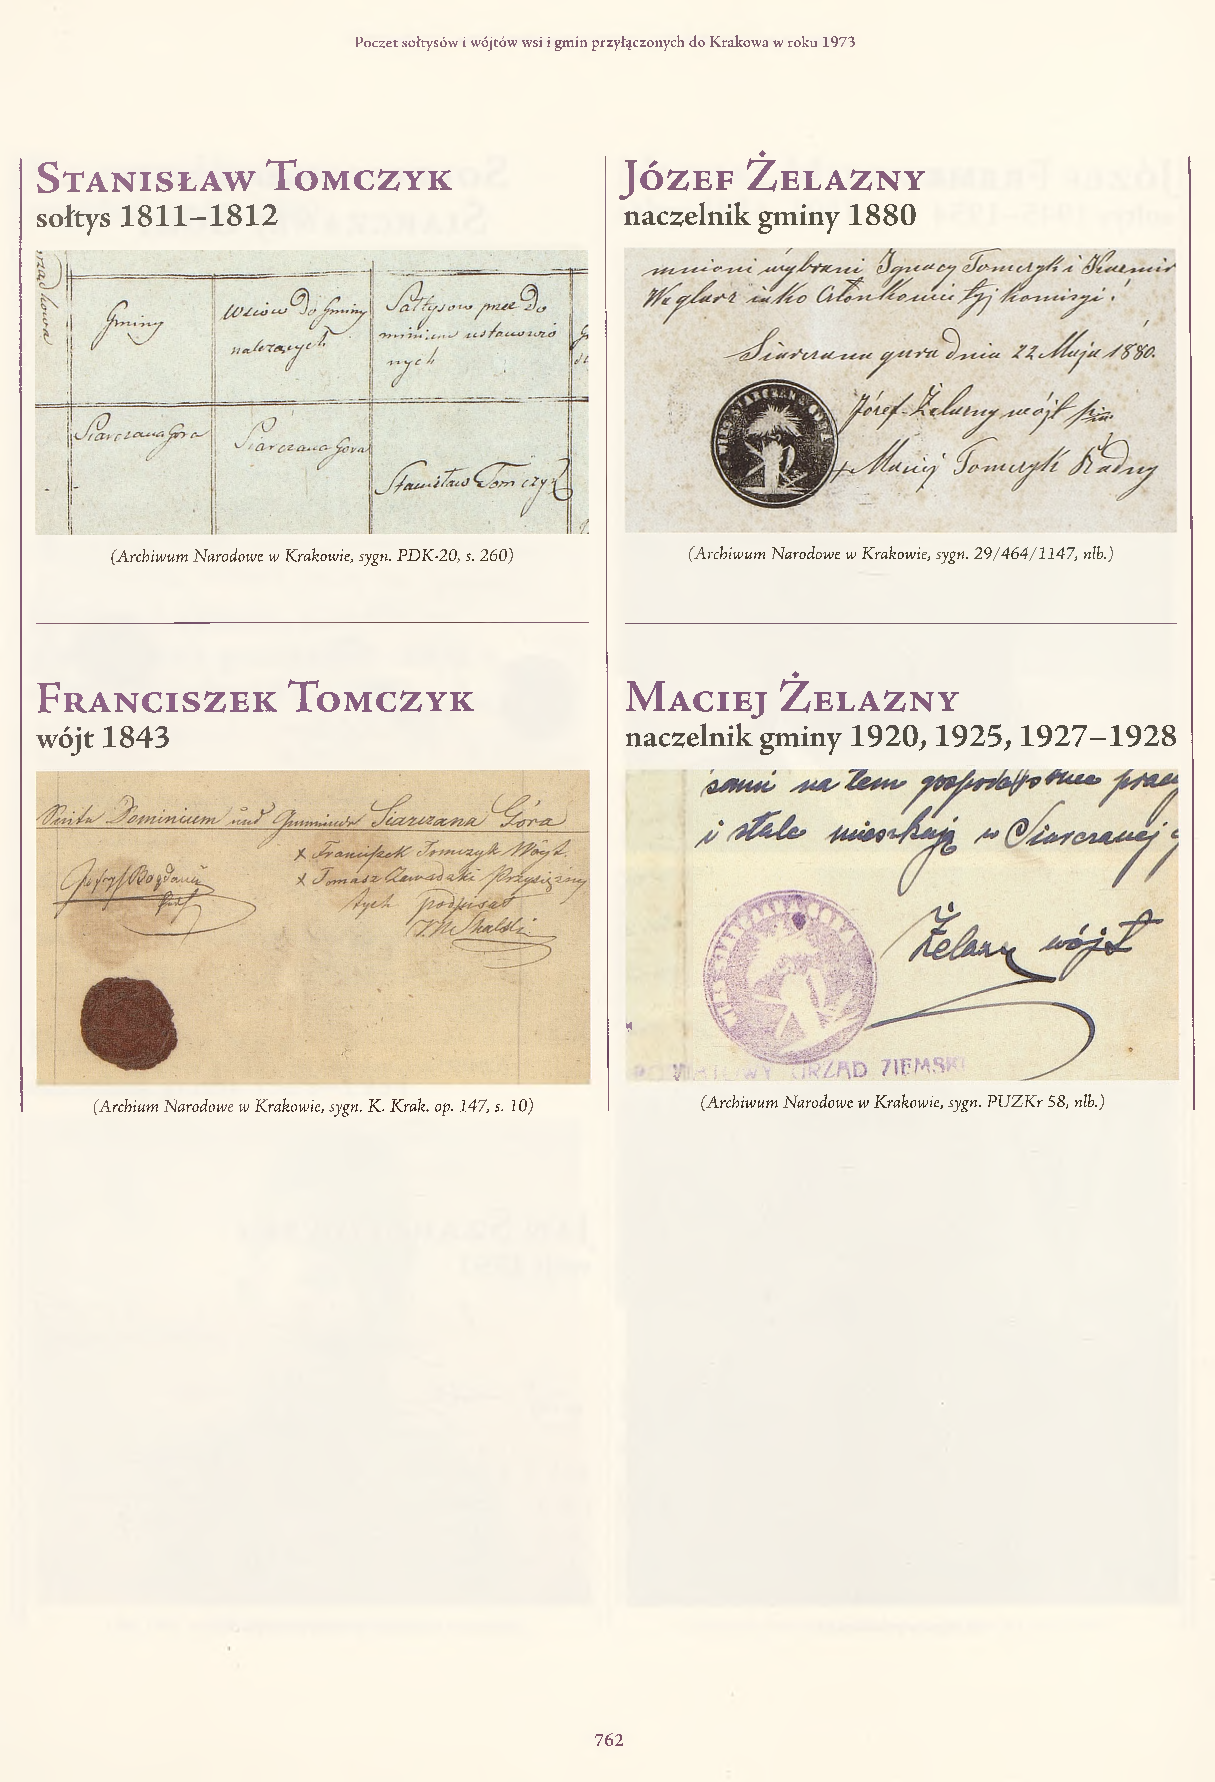 Poczet sołtysów i wójtów wsi i gmin przyłączonych do Krakowa w roku 1973
Stanisław Tomczyk
sołtys 1811–1812
Gminy
Wsiów do Gminy
należących
Sołtysow prze Do
minium ustanowio
nych
Siarczana Gora
Siarczana Gora
Stanisław Tomczyk
(Archiwum Narodowe w Krakowie, sygn. PDK-20, s. 260)
Franciszek Tomczyk
wójt 1843
Dominium und Siarczana Góra
x Franciszek Tomczyk Wójt
x Tomasz Zawadzki Przysiężny
tych podpisał
(Archium Narodowe w Krakowie, sygn. K. Krak. op. 147, s. 10)
Józef Żelazny
naczelnik gminy 1880
mnioni wybrani Ignacy Tomczyk i Kazmir
Węglarz iako Członkowie tyj komisyi.
Siarczana gura dnia 22 Maja 1880.
Józef Żelazny wójt
+ Maciej Tomczyk Radny
(Archiwum Narodowe w Krakowie, sygn. 29/464/1147, nlb.)
Maciej Żelazny
naczelnik gminy 1920, 1925, 1927–1928
sami na tem gospodarstwie pracu
i stale mieszkają w Siarczanej g
Żelazny wójt
POWIATOWY URZĄD ZIEMSKI
(Archiwum Narodowe w Krakowie, sygn. PUZKr 58, nlb.)
762